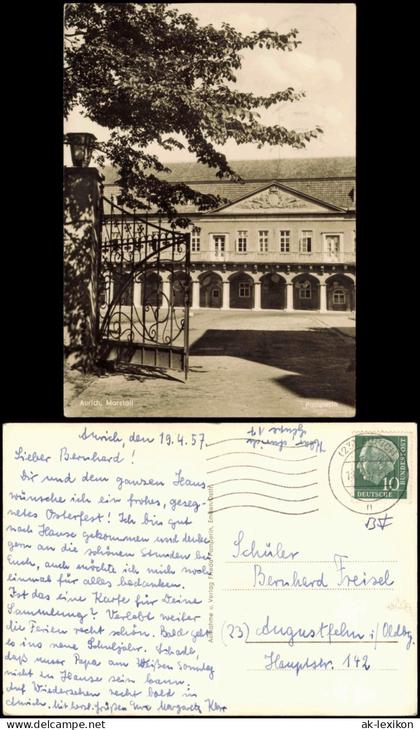 Aurich, Marstall
Pamperin
Aurich, den 19.4.57
Lieber Bernhard!
Dir und dem ganzen Haus
wünsche ich ein frohes, geseg-
netes Osterfest! Ich bin gut
nach Hause gekommen und denke
gern an die schönen Stunden bei
Euch, auch möchte ich mich noch
einmal für alles bedanken.
Ist das eine Karte für Deine
Sammlung? Verlebt weiter
die Ferien recht schön. Bald geht
es ins neue Schuljahr. Schade,
daß unser Papa am Weißen Sonntag
nicht zu Hause sein kann.
Auf Wiedersehen recht bald in
Aurich. Mit herzl. Grüßen Eure Margarete
Aufnahme u. Verlag: Pamperin, Emden
Aurich
DEUTSCHE
BUNDESPOST
10
Schüler
Bernhard Freisel
(23) Augustfehn i/Oldbg.
Hauptstr. 142
ak-lexikon